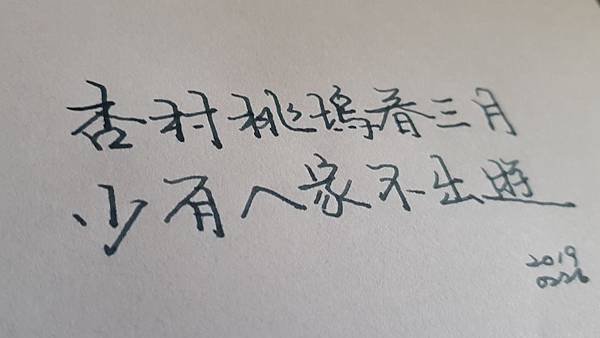 杏村桃塢春三月
少有人家不出遊
2019
0226